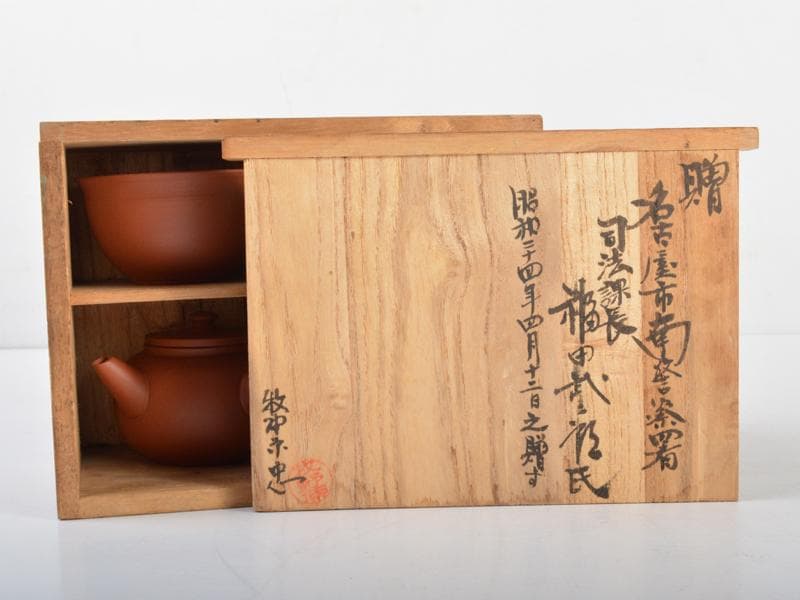 贈
名古屋市南警察署
司法課長
福田武三郎氏
昭和二十四年四月十二日之贈す